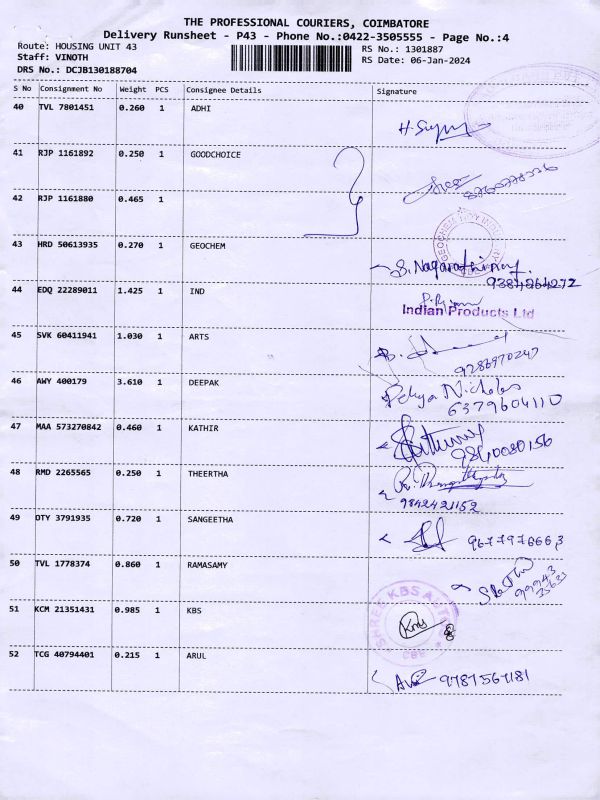 THE PROFESSIONAL COURIERS, COIMBATORE
Delivery Runsheet - P43 - Phone No.:0422-3505555 - Page No.:4
Route: HOUSING UNIT 43
Staff: VINOTH
DRS No.: DCJB130188704
RS No.: 1301887
RS Date: 06-Jan-2024
S No Consignment No Weight PCS Consignee Details Signature
40 TVL 7801451 0.260 1 ADHI
41 RJP 1161892 0.250 1 GOODCHOICE
42 RJP 1161880 0.465 1
43 HRD 50613935 0.270 1 GEOCHEM
S. Nagarathinam
9384264272
44 EDQ 22289011 1.425 1 IND
Indian Products Ltd
45 SVK 60411941 1.030 1 ARTS
9286970247
46 AWY 400179 3.610 1 DEEPAK
Nicholas
6379604110
47 MAA 573270842 0.460 1 KATHIR
9840080156
48 RMD 2265565 0.250 1 THEERTHA
9842421152
49 OTY 3791935 0.720 1 SANGEETHA
50 TVL 1778374 0.860 1 RAMASAMY
99943
35633
51 KCM 21351431 0.985 1 KBS
SHREE KBS AUTO
52 TCG 40794401 0.215 1 ARUL
9787567181